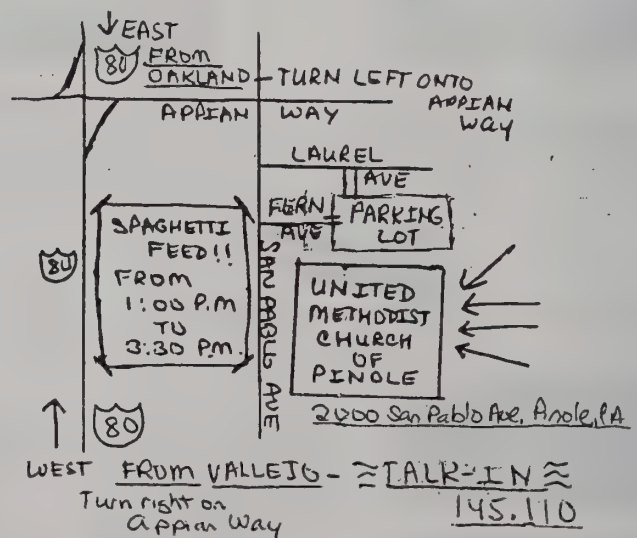 ↓ EAST
80 FROM
OAKLAND - TURN LEFT ONTO
APPIAN
WAY
APPIAN WAY
LAUREL
AVE
FERN
AVE
PARKING
LOT
SPAGHETTI
FEED!!
FROM
1:00 P.M
TO
3:30 P.M.
80
SAN PABLO AVE
UNITED
METHODIST
CHURCH
OF
PINOLE
San Pablo Ave, Pinole, CA
80
WEST FROM VALLEJO - ≈ TALK-IN ≈
Turn right on
Appian Way
145.110